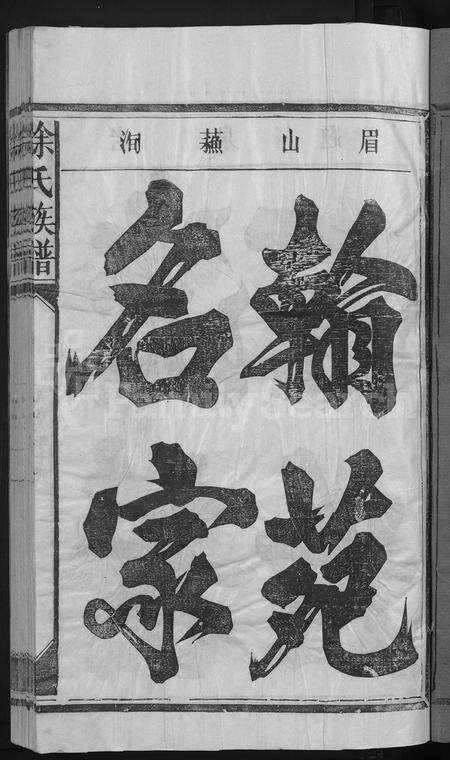 眉山蘇洵
翰苑
名家
余氏族譜
FamilySearch